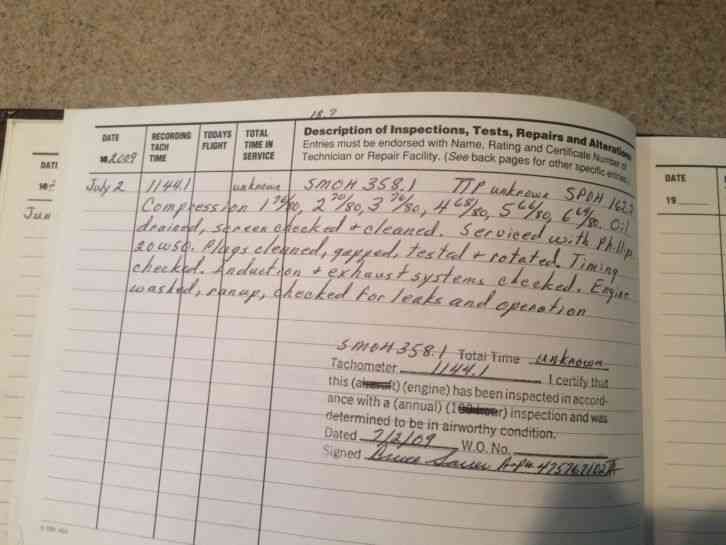 18.7
DATE RECORDING TACH TIME TODAYS FLIGHT TOTAL TIME IN SERVICE Description of Inspections, Tests, Repairs and Alterations
2009 Entries must be endorsed with Name, Rating and Certificate Number of
Technician or Repair Facility. (See back pages for other specific entries.
July 2 1144.1 unknown SMOH 358.1 TTP unknown SPOH 162.7
Compression 1 76/80, 2 70/80, 3 76/80, 4 68/80, 5 66/80, 6 69/80. Oil
drained, screen checked + cleaned. Serviced with Phillip
20W50. Plugs cleaned, gapped, tested + rotated. Timing
checked. Induction + exhaust systems checked. Engine
washed, runup, checked for leaks and operation
SMOH 358.1 Total Time unknown
Tachometer 1144.1 I certify that
this (aircraft) (engine) has been inspected in accord-
ance with a (annual) (100-hour) inspection and was
determined to be in airworthy condition.
Dated 7/2/09 W.O. No.
Signed Bruce A+P# 475762102IA
DATE
19
DAT
Jun